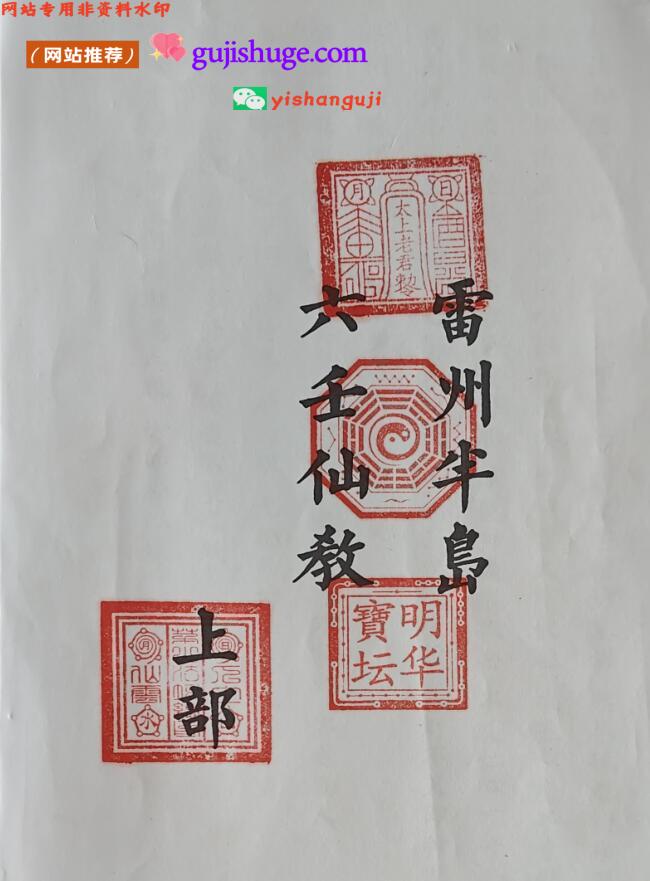 网站专用非资料水印
（网站推荐）
gujishuge.com
yishanguji
雷州半島
六壬仙教
上部
日
月
太上老君敕
明华
寶坛